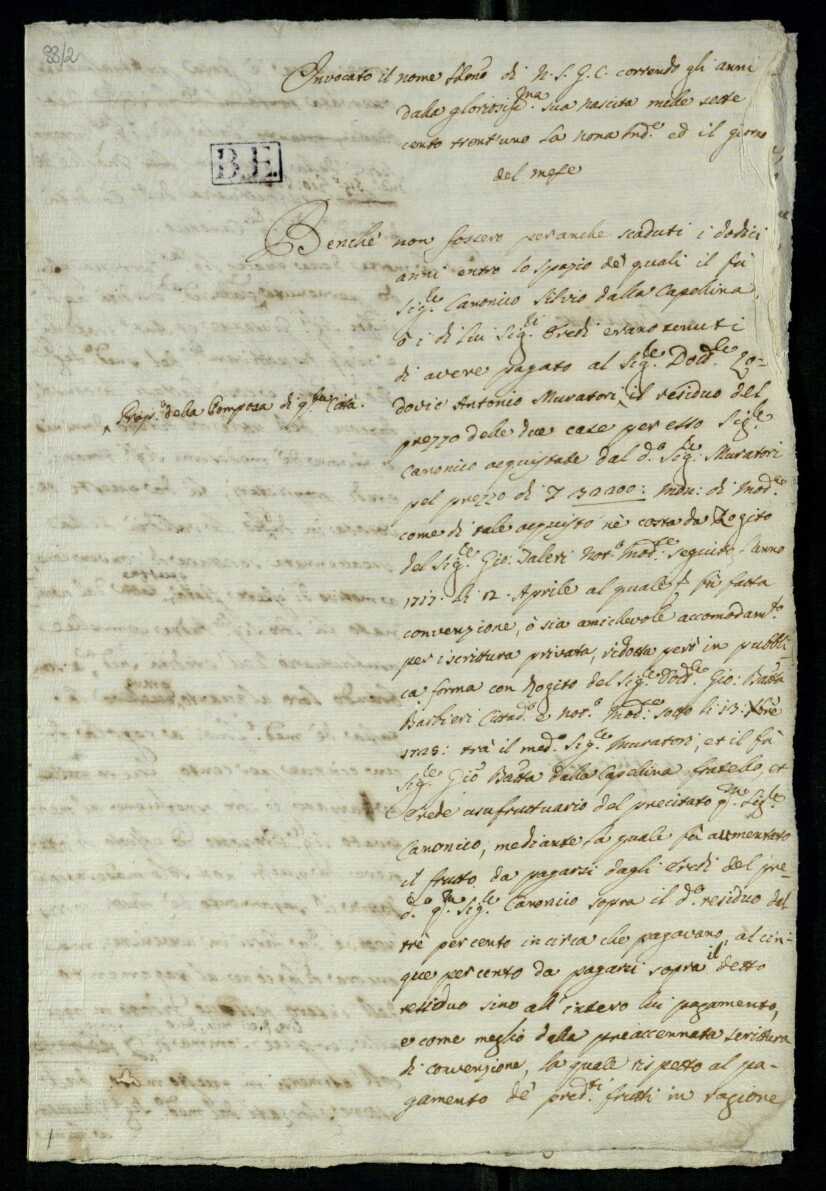 33/2
Invocato il nome SSmo di N. S. G. C. correndo gli anni
dalla gloriosiss.ma sua nascita mille sette
cento trent'uno la nona Ind.e ed il giorno
del mese
B.E.
Benche non fossero per anche scaduti i dodici
anni entro lo spazio de quali il fù
Sig.re Canonico Silvio dalla Capellina,
ò i di lui Sig.ri Eredi erano tenuti
di avere pagato al Sig.re Dott.re Lo-
dovic Antonio Muratori, il residuo del
Prop.o della Pomposa di q.sta Città.
prezzo delle due case per esso Sig.re
Canonico acquistate dal d.o Sig.re Muratori
pel prezzo di 30200: Mon: di Mod.a
come di tale acquisto nè costa da Rogito
del Sig.re Gio: Not.o Mod.se seguito l'anno
1717: li 12. Aprile al quale fù fatta
convenzione, ò sia amichevole accomodam.to
per iscrittura privata, ridotta però in pubbli-
ca forma con Rogito del Sig.re Dott.re Gio: Batta
Barbieri Cittad.o e Not.o Mod.se sotto li 13:
1725: trà il med.o Sig.re Muratori, et il fù
Sig.re Gio Batta dalla Capellina fratello, et
Erede usufruttuario del precitato q.m Sig.re
Canonico, mediante la quale fù aumentato
il frutto da pagarsi dagli Eredi del pre-
d.o q.m Sig.re Canonico sopra il d.o residuo dal
trè per cento in circa che pagavano, al cin-
que per cento da pagarsi sopra il detto
residuo sino all'intero lui pagamento,
e come meglio dalla preaccennata scrittura
di convenzione, la quale rispetto al pa-
gamento de pred.ti frutti in ragione
1